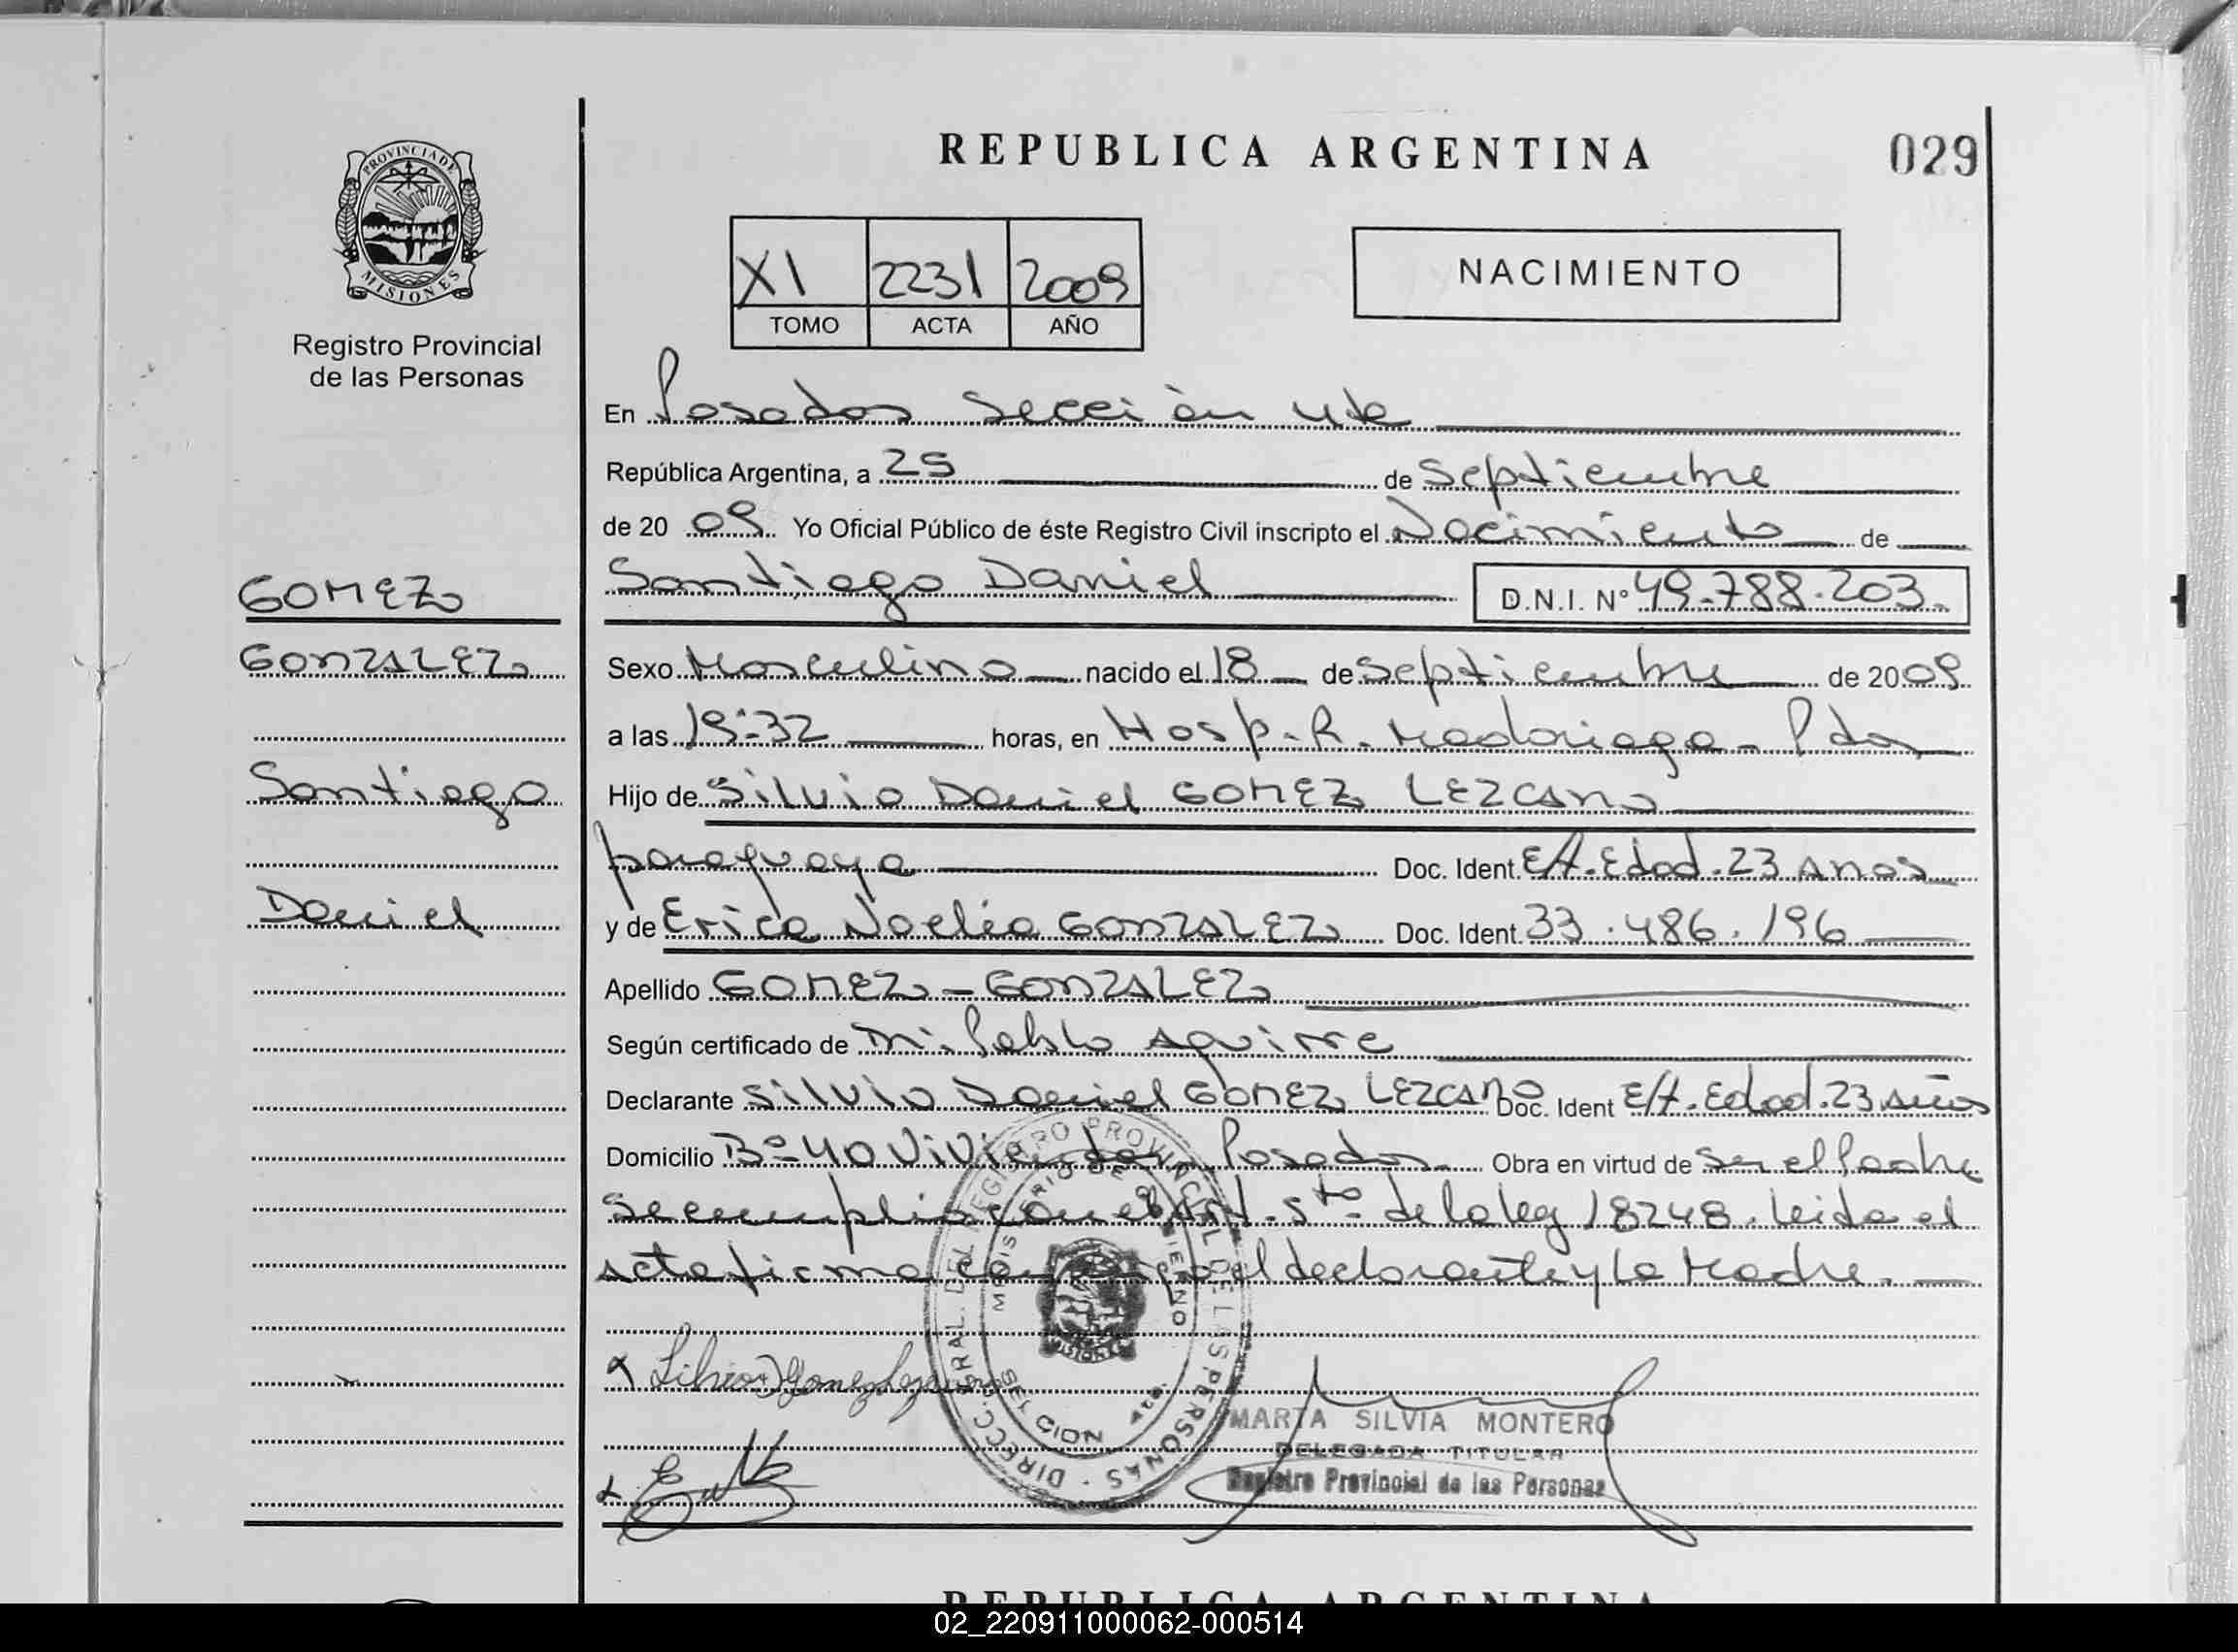 REPUBLICA ARGENTINA
029
PROVINCIA DE
MISIONES
Registro Provincial
de las Personas
XI 2231 2009
TOMO ACTA AÑO
NACIMIENTO
En Posadas Sección 4ta
República Argentina, a 25 de Septiembre
de 20 09 Yo Oficial Público de éste Registro Civil inscripto el Nacimiento de
Santiago Daniel D.N.I. N° 49.788.203.
GOMEZ
GONZALEZ
Santiago
Daniel
Sexo Masculino nacido el 18 de Septiembre de 20 09
a las 19:32 horas, en Hosp. R. Madariaga - Pdas
Hijo de Silvio Daniel GOMEZ LEZCANO
paraguaya Doc. Ident. E/A. Edad. 23 Anos
y de Erica Noelia GONZALEZ Doc. Ident. 33.486.196
Apellido GOMEZ - GONZALEZ
Según certificado de Pablo Aguirre
Declarante Silvio Daniel GOMEZ LEZCANO Doc. Ident E/A. Edad. 23 años
Domicilio B° 40 Viviendas Posadas Obra en virtud de Ser el Padre
Se cumplio con el Art. 5to de la ley 18248. Leida el
Acta firma el declarante y la Madre.
DIRECC. GRAL. DEL REGISTRO PROVINCIAL DE LAS PERSONAS
MINISTERIO DE GOBIERNO
SECCION 4ta
MISIONES
MARTA SILVIA MONTERO
DELEGADA TITULAR
Registro Provincial de las Personas
REPUBLICA ARGENTINA
02_220911000062-000514